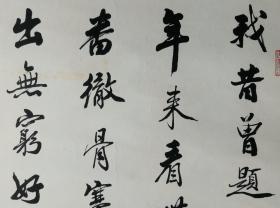 我昔曾題
年来看世
番徹骨寒
出無窮好